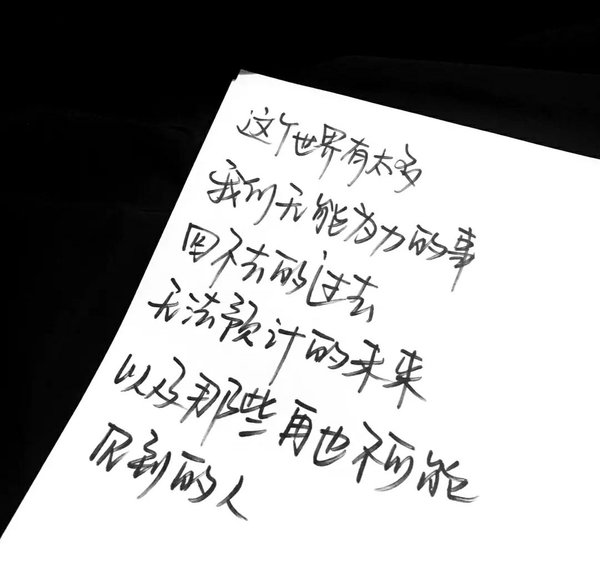 这个世界有太多
我们无能为力的事
回不去的过去
无法预计的未来
以及那些再也不可能
见到的人